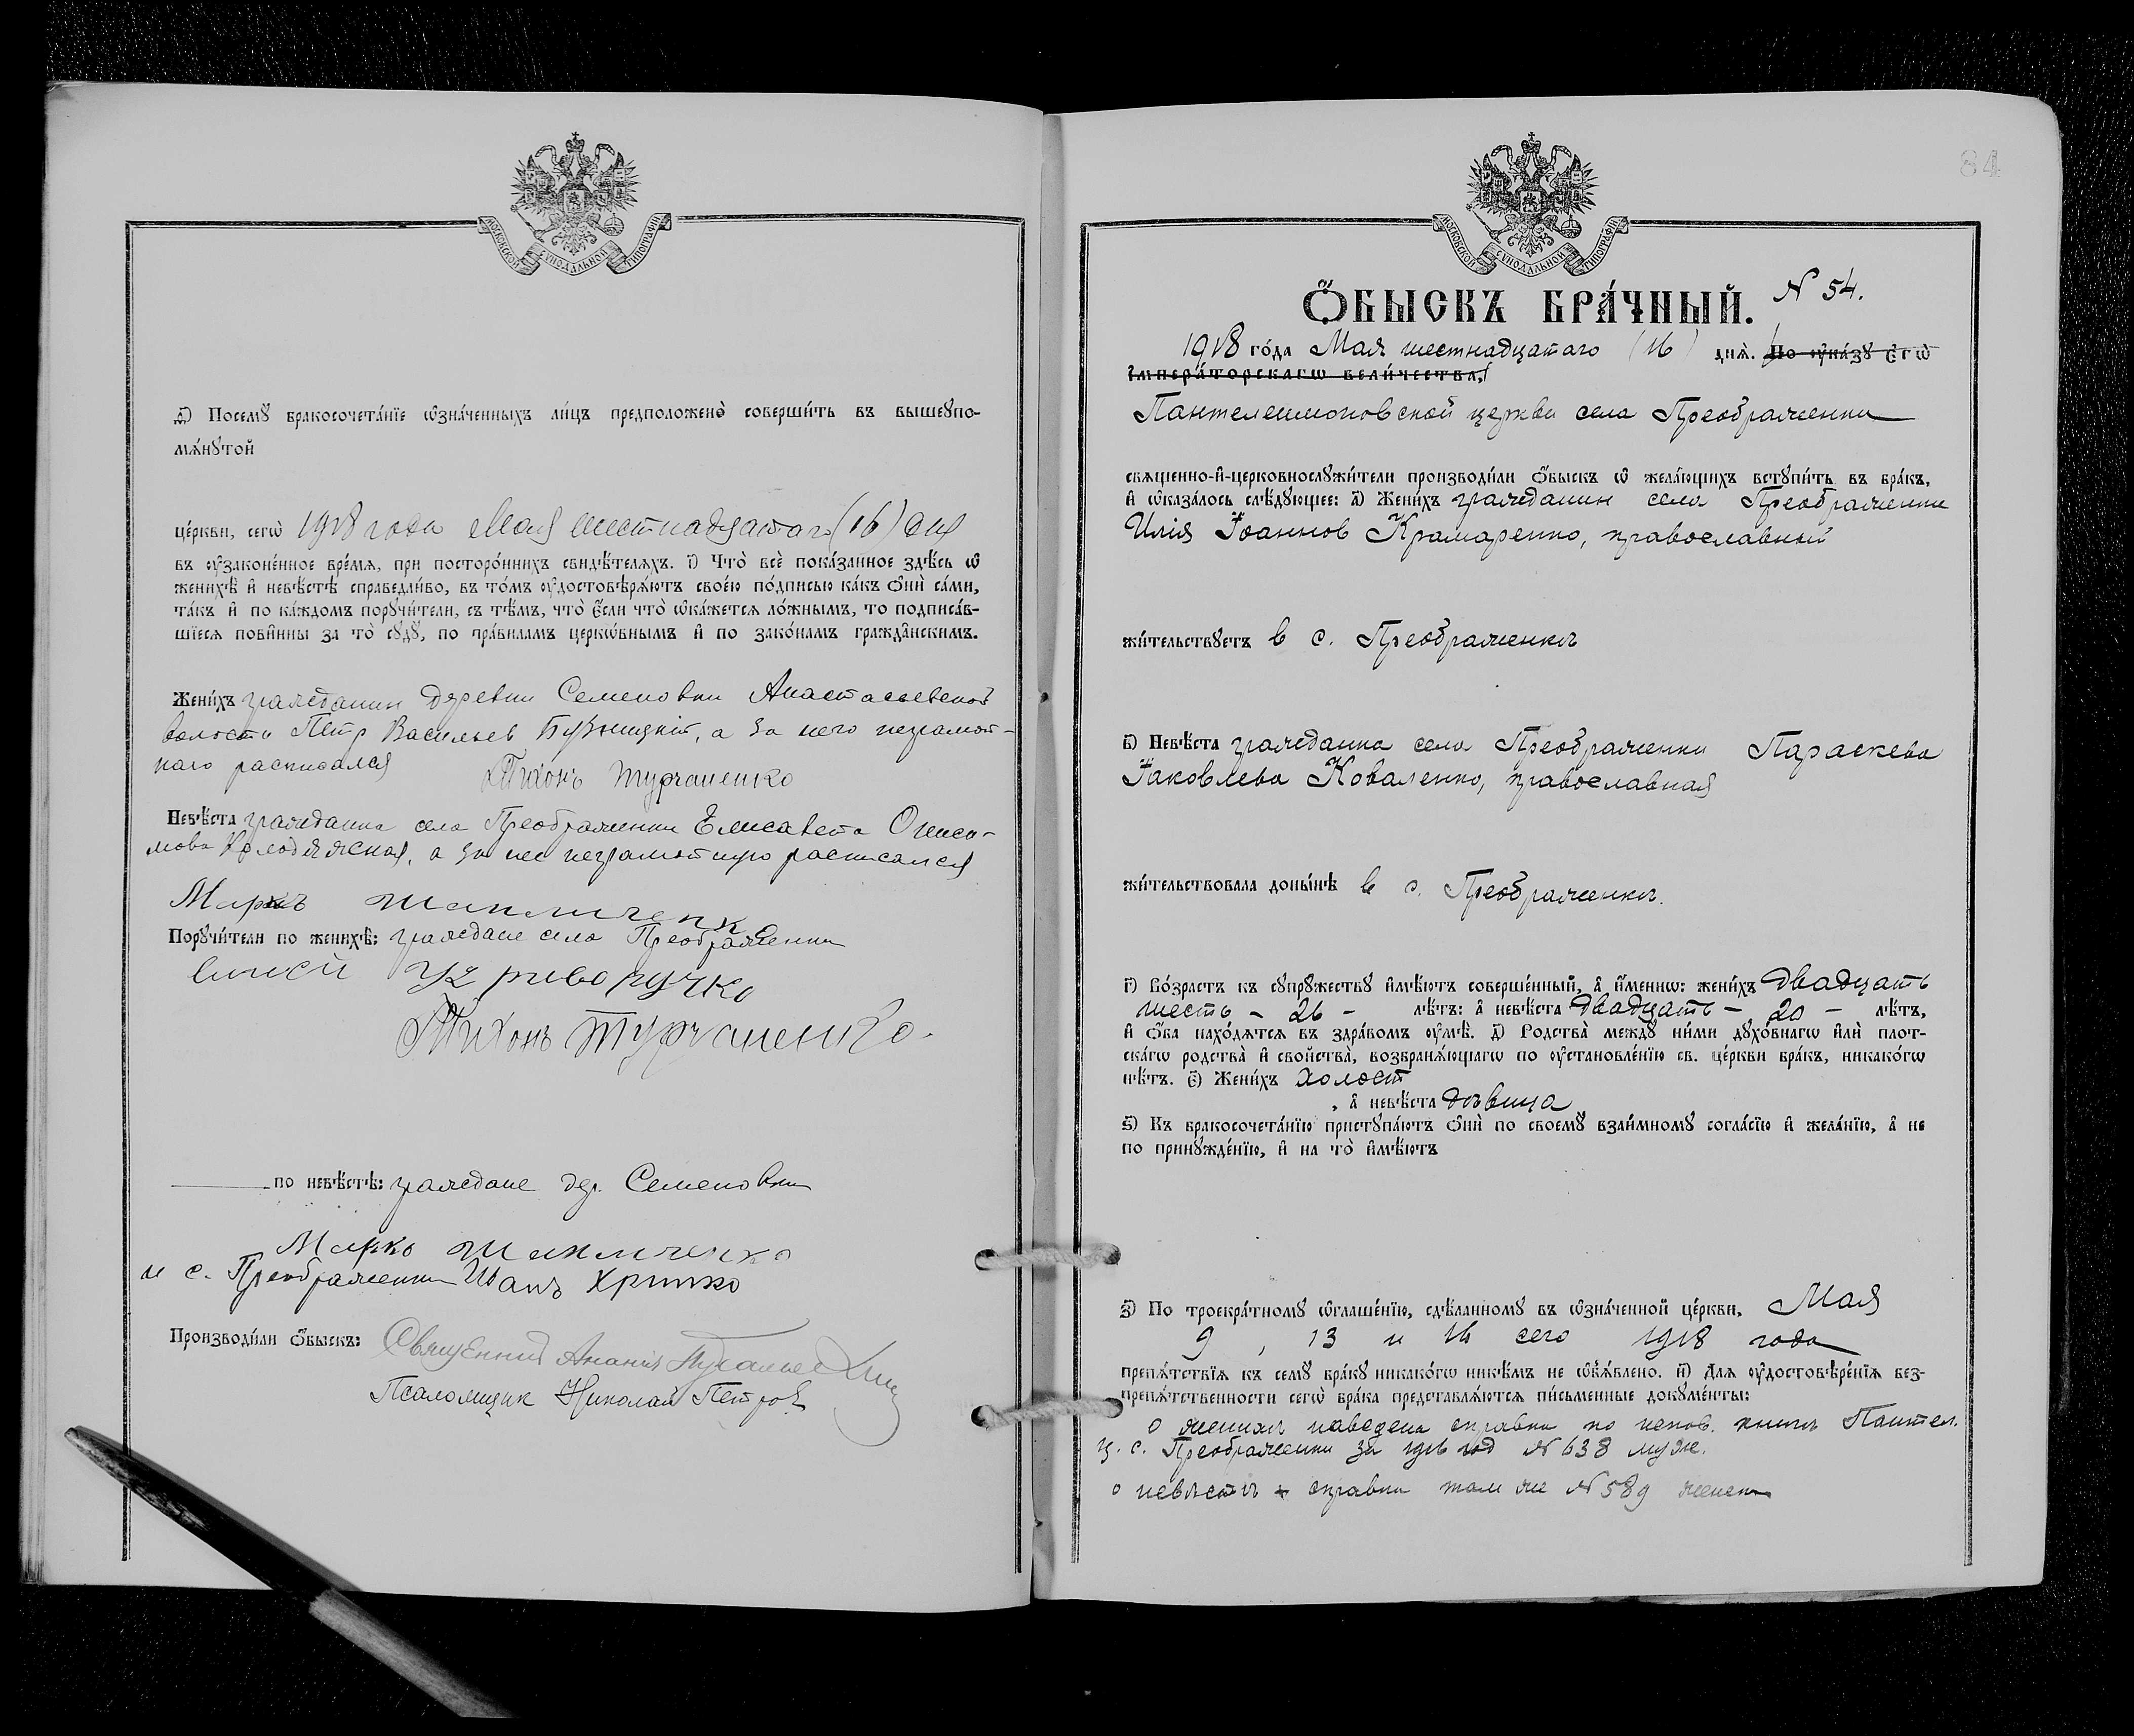 МОСКОВСКОЙ СѴНОДАЛЬНОЙ ТИПОГРАФІИ
д҃) Посемꙋ̀ бракосочета́нїе ѡ҆зна́ченныхъ ли́цъ предположено̀ соверши́ть въ вышеꙋпо-
мѧ́нꙋтой
це́ркви, сегѡ̀ 1918 года Мая шестнадцатаго (16) дня
въ ᲂу҆законе́нное вре́мѧ, при посторо́ннихъ свидѣ́телѧхъ. і҃) Что̀ всѐ пока́занное здѣ́сь ѡ҆
женихѣ̀ и҆ невѣ́стѣ справедли́во, въ то́мъ ᲂу҆достовѣрѧ́ютъ свое́ю по́дписью ка́къ ѻ҆нѝ са́ми,
та́къ и҆ по ка́ждомъ порꙋчи́тели, съ тѣ́мъ, что̀ є҆́сли что̀ ѡ҆ка́жетсѧ ло́жнымъ, то подписа́в-
шїесѧ пови́нны за то̀ сꙋдꙋ̀, по пра́виламъ церко́внымъ и҆ по зако́намъ гражда́нскимъ.
Жени́хъ гражданин деревни Семеновки Анастасьевской
волости Петр Васильев, а за него неграмот-
наго расписался Тихонъ Турчаненко
Невѣ́ста гражданка села Преображенки Елисавета Ониси-
мова Колодяжная, а за нее неграмотную расписался
Марко
Порꙋчи́тели по женихѣ̀: граждане села Преображенки
Тихонъ Турчаненко
по невѣ́стѣ: граждане дер. Семеновки
Марко
и с. Преображенки Иванъ Хрипко
Производи́ли ѻ҆́быскъ: Священник Анания
Псаломщик Николай Петров
84
МОСКОВСКОЙ СѴНОДАЛЬНОЙ ТИПОГРАФІИ
Ѻ҆́БЫСКЪ БРА́ЧНЫЙ. N 54.
1918 го́да Мая шестнадцатаго (16) днѧ̀. По ᲂу҆ка́зꙋ Є҆гѡ̀
І҆мпера́торскагѡ вели́чества,
Пантелеимоновской церкви села Преображенки
свѧще́нно-и҆-церковнослꙋжи́тели производи́ли ѻ҆́быскъ ѡ҆ жела́ющихъ встꙋпи́ть въ бра́къ,
и҆ ѡ҆каза́лось слѣ́дꙋющее: а҃) Жени́хъ гражданин села Преображенки
Илия Іоаннов Крамаренко, православный
жи́тельствꙋетъ в с. Преображенкѣ
в҃) Невѣ́ста гражданка села Преображенки Параскева
Іаковлева Коваленко, православная
жи́тельствовала доны́нѣ в с. Преображенкѣ.
г҃) Во́зрастъ къ сꙋпрꙋ́жествꙋ и҆мѣ́ютъ соверше́нный, а҆ и҆́меннѡ: жени́хъ двадцать
шесть - 26 - лѣ́тъ: а҆ невѣ́ста двадцать - 20 - лѣ́тъ,
и҆ ѻ҆́ба нахо́дѧтсѧ въ здра́вомъ ᲂу҆мѣ̀. д҃) Родства̀ междꙋ̀ ни́ми дꙋхо́внагѡ и҆лѝ плот-
ска́гѡ родства̀ и҆ свойства̀, возбранѧ́ющагѡ по ᲂу҆становле́нїю св. це́ркви бра́къ, никако́гѡ
нѣ́тъ. є҃) Жени́хъ холост
, а҆ невѣ́ста дѣвица
ѕ҃) Къ бракосочета́нїю пристꙋпа́ютъ ѻ҆нѝ по своемꙋ̀ взаи́мномꙋ согла́сїю и҆ жела́нїю, а҆ не
по принꙋжде́нїю, и҆ на то̀ и҆мѣ́ютъ
з҃) По троекра́тномꙋ ѡ҆глаше́нїю, сдѣ́ланномꙋ въ ѡ҆зна́ченной це́ркви, Мая
9, 13 и 16 сего 1918 года
препѧ́тствїѧ къ семꙋ̀ бра́кꙋ никако́гѡ никѣ́мъ не ѡ҆б̾ѧ́влено. и҃) Длѧ ᲂу҆достовѣре́нїѧ без-
препѧ́тственности сегѡ̀ бра́ка представлѧ́ютсѧ пи́сьменные докꙋме́нты:
о женихѣ наведена справка по испов. книгѣ Пантел.
ц. с. Преображенки за 1916 год N 638 муж.
о невѣстѣ справка там же N 589 женск